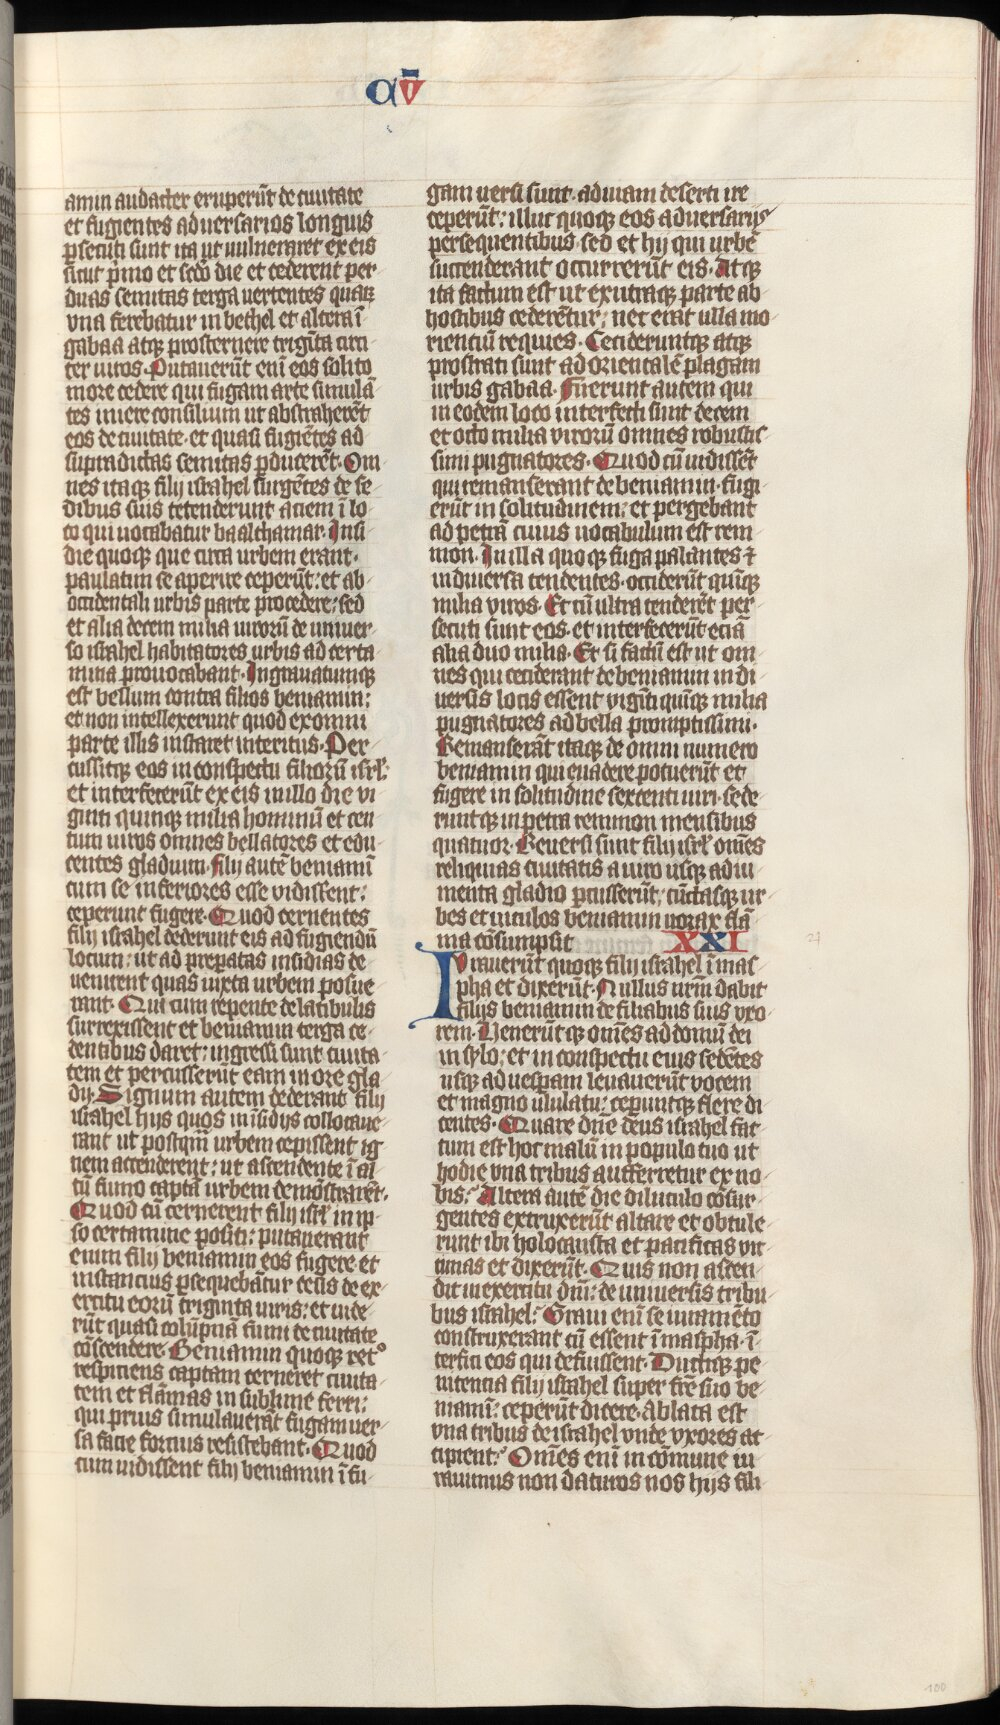 a v̄
amin audacter eruperūt de ciuitate
et fugientes aduersarios longius
ꝑsecuti sunt ita ut uulnerarēt ex eis
sicut p̄mo et sc̄do die et cederent per
duas semitas terga uertentes quaꝝ
vna ferebatur in bethel et altera ī
gabaa atqꝫ prosternere triginta circi
ter uiros. Putauerūt eni eos solito
more cedere qui fugam arte simulā
tes iniere consilium ut abstraherēt
eos de ciuitate. et quasi fugiētes ad
supradictas semitas ꝑducerēt. Om
nes itaqꝫ filij israhel surgētes de se
dibus suis tetenderunt aciem ī lo
co qui uocabatur baalthamar. Insi
die quoqꝫ que circa urbem erant.
paulatim se aperire ceperūt: et ab
occidentali urbis parte procedere: sed
et alia decem milia uirorū de uniuer
so israhel habitatores urbis ad certa
mina prouocabant. Ingrauatumqꝫ
est bellum contra filios beniamin:
et non intellexerunt quod ex omni
parte illis instaret interitus. Per
cussitqꝫ eos in conspectu filiorū isrl̄.
et interfecerūt ex eis in illo die vi
ginti quinqꝫ milia hominū et cen
tum uiros omnes bellatores et edu
centes gladium. filij autē beniamī
cum se inferiores esse vidissent:
ceperunt fugere. Quod cernentes
filij israhel dederunt eis ad fugiendū
locum: ut ad preparatas insidias de
uenirent quas iuxta urbem posue
rant. Qui cum repente de latibulis
surrexissent et beniamin terga ce
dentibus daret: ingressi sunt ciuita
tem et percusserūt eam in ore gla
dij. Signum autem dederant filij
israhel hijs quos in īsidijs collocaue
rant ut postqm̄ urbem cepissent ig
nem accenderent: ut ascendente ī al
tū fumo captā urbem demōstrarēt.
Quod cū cernerent filij isrl̄ in ip
so certamine positi: putauerant
enim filij beniamin eos fugere et
instancius ꝑsequebātur cesis de ex
ercitu eorū triginta uiris: et vide
rūt quasi colūpnā fumi de ciuitate
cōscendere. Beniamin quoqꝫ ret°
respiciens captam cerneret ciuita
tem et flāmas in sublime ferri:
qui prius simulauerāt fugam uer
sa facie forcius resistebant. Quod
cum uidissent filij beniamin ī fu
gam uersi sunt. ad uiam deserti ire
ceperūt: illuc quoqꝫ eos aduersarijs
persequentibus. sed et hij qui urbē
succenderant occurrerūt eis. Atqꝫ
ita factum est ut ex utraqꝫ parte ab
hostibus cederētur: nec erat ulla mo
rientiū requies. Cecideruntqꝫ atqꝫ
prostrati sunt ad orientalē plagam
urbis gabaa. Fuerunt autem qui
in eodem loco interfecti sunt decem
et octo milia virorū omnes robustis
simi pugnatores. Quod cū uidissēt
qui remanserant de beniamin. fugi
erūt in solitudinem: et pergebant
ad petrā cuius uocabulum est rem
mon. In illa quoqꝫ fuga palantes ⁊
in diuersa tendentes. occiderūt quīqꝫ
milia viros. Et cū ultra tenderēt per
secuti sunt eos. et interfecerūt eciā
alia duo milia. Et si factū est ut om
nes qui ceciderant de beniamin in di
uersis locis essent viginti quīqꝫ milia
pugnatores ad bella promptissimi.
Remanserāt itaqꝫ de omni numero
beniamin qui euadere potuerūt et
fugere in solitudine sexcenti uiri. sede
runtqꝫ in petra remmon mensibus
quatuor. Reuersi sunt filij isrl̄ om̄es
reliquias ciuitatis a uiro usqꝫ ad iu
menta gladio ꝑcusserūt: cūctasqꝫ ur
bes et uiculos beniamin uorax flā
ma cōsumpsit XXI
Iurauerūt quoqꝫ filij israhel ī mas
pha et dixerūt. Nullus nr̄m dabit
filijs beniamin de filiabus suis vxo
rem. Venerūtqꝫ om̄es ad domū dei
in sylo: et in conspectu eius sedētes
usqꝫ ad uesꝑam leuauerūt vocem
et magno ululatu: ceperuntqꝫ flere di
centes. Quare dn̄e deus israhel fac
tum est hoc malū in populo tuo ut
hodie vna tribus aufferretur ex no
bis: Altera autē die diluculo cōsur
gentes extruxerūt altare et obtule
runt ibi holocausta et pacificas vic
timas et dixerūt. Quis non ascen
dit in exercitu dn̄i: de uniuersis tribu
bus israhel: Graui enī se iuramēto
construxerant cū essent ī maspha. ī
terfici eos qui defuissent. Ductiqꝫ pe
nitencia filij israhel super fr̄e suo be
niamī: ceperūt dicere. Ablata est
vna tribus de israhel vnde vxores ac
cipient: Om̄es enī in cōmune iu
rauimus non daturos nos hijs fili
21
100